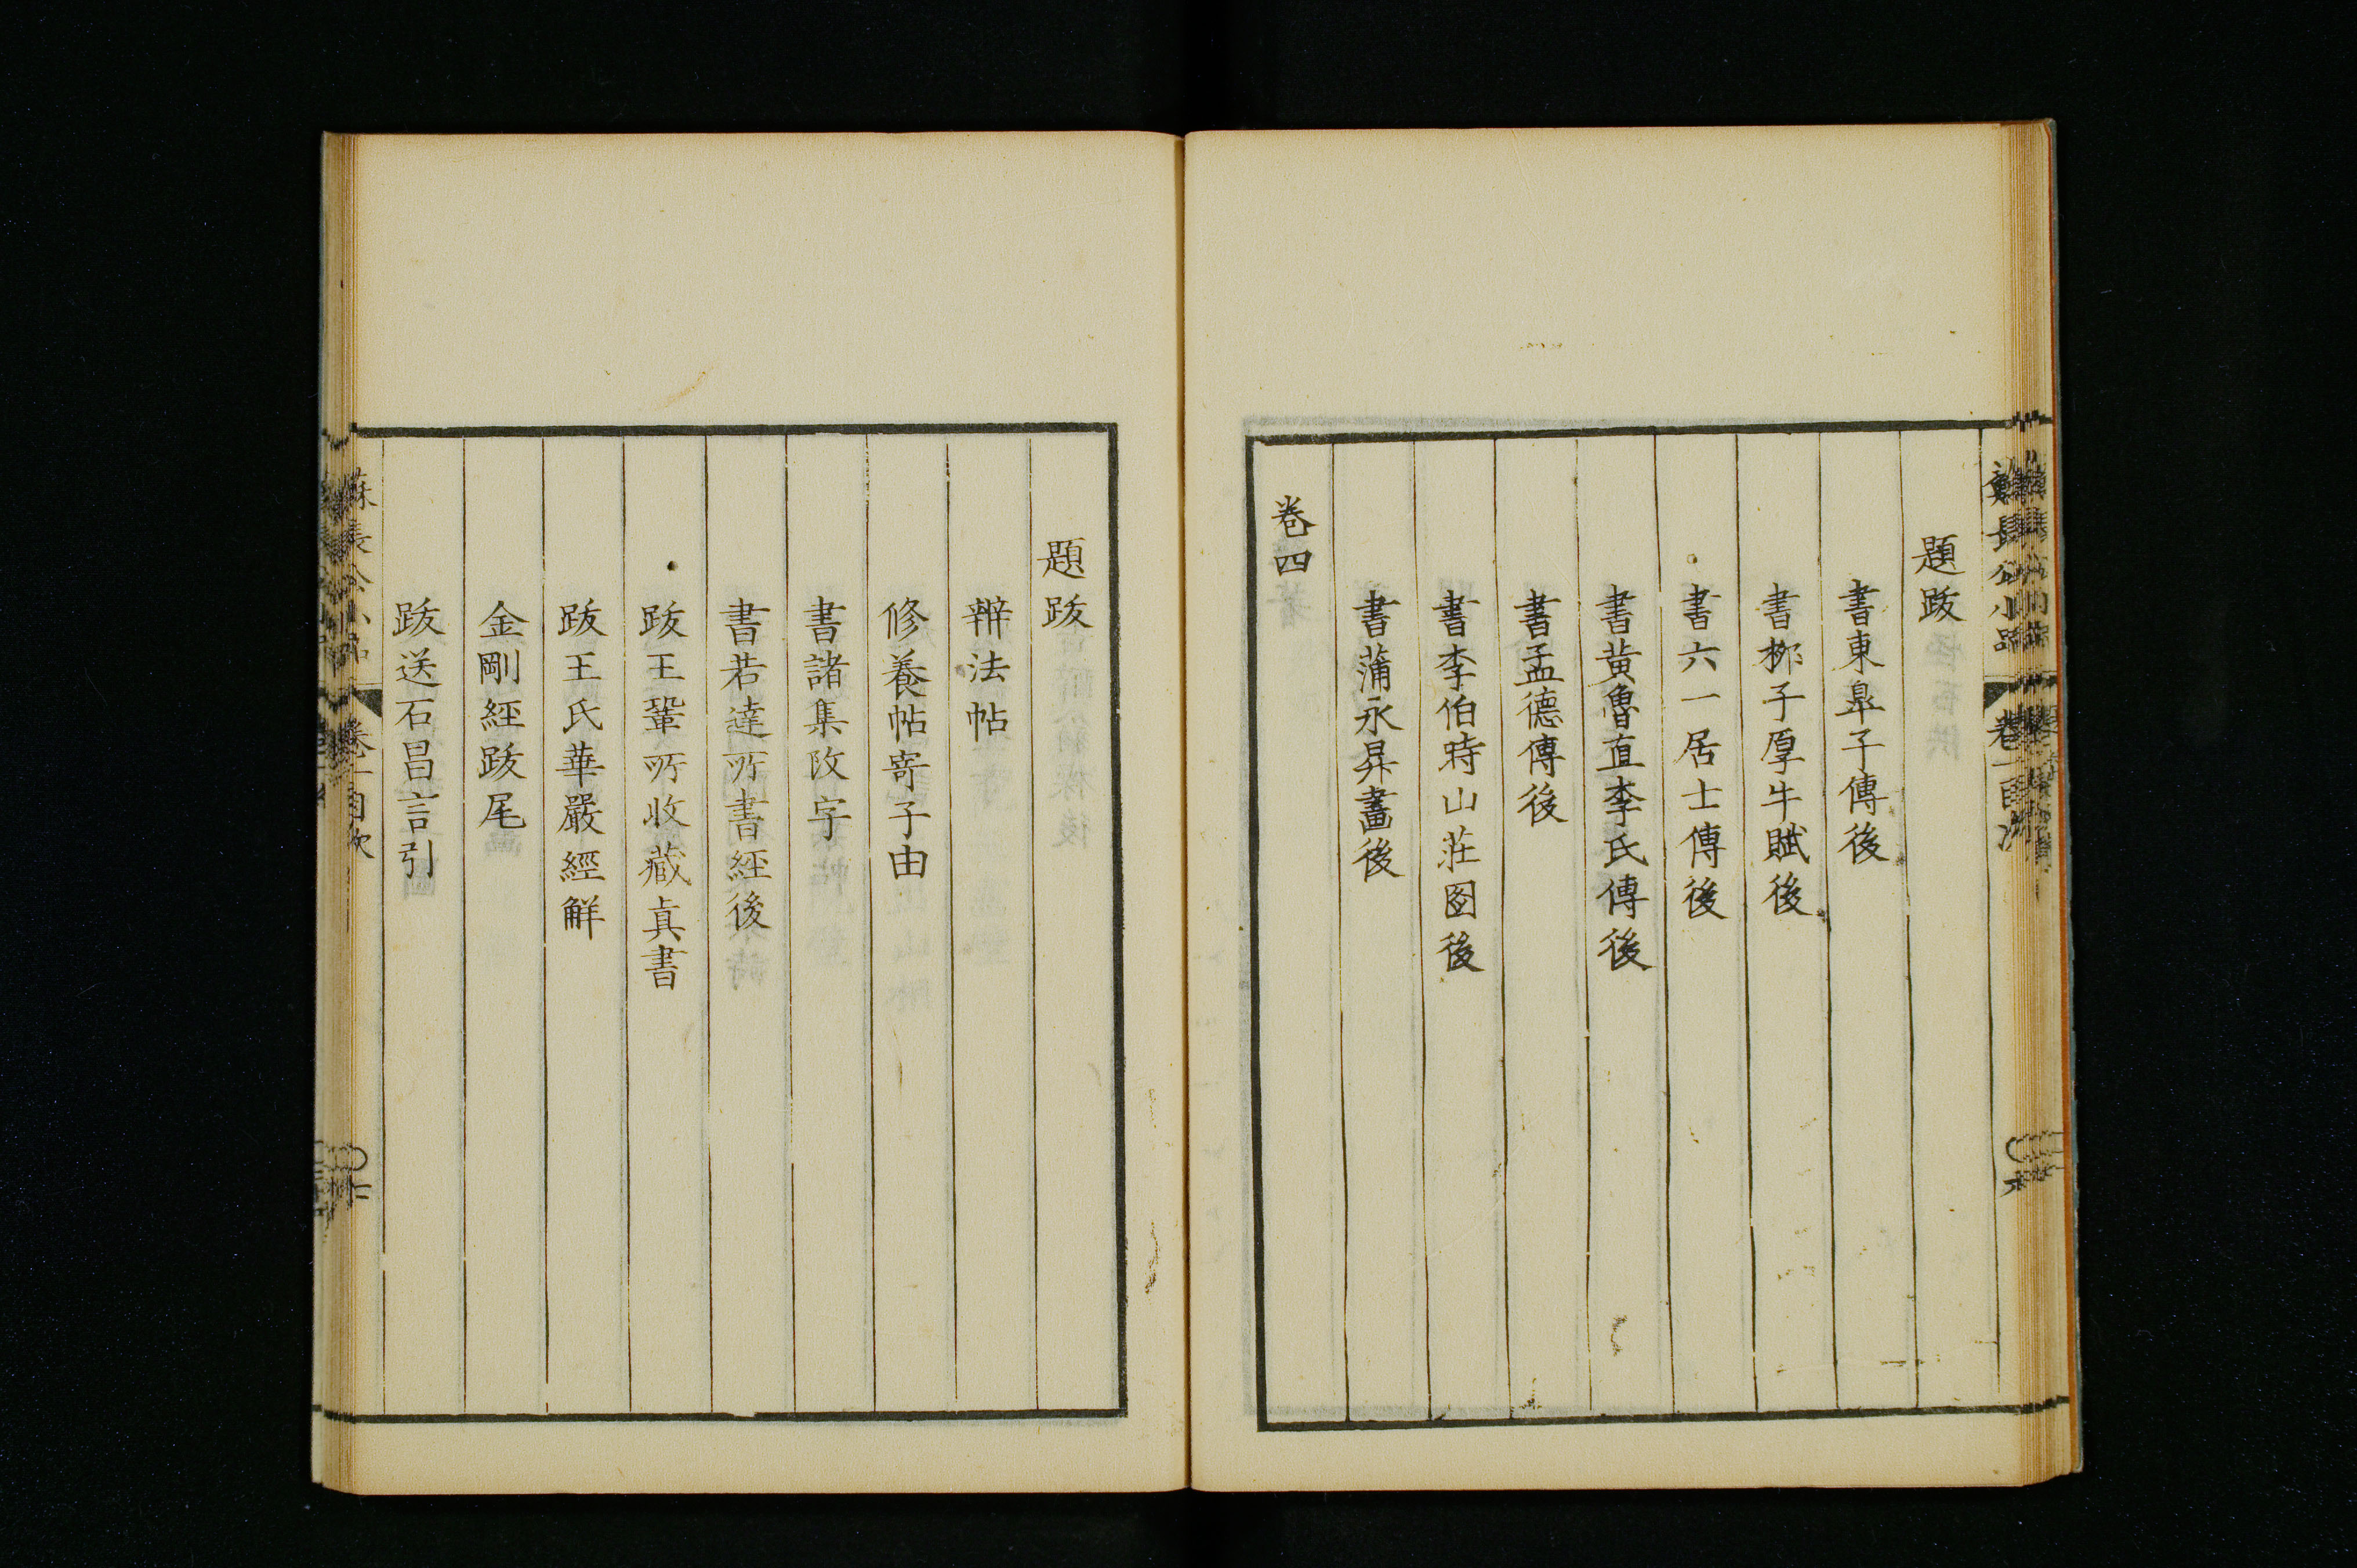 題跋
書東臯子傳後
書柳子厚牛賦後
書六一居士傳後
書黄魯直李氏傳後
書孟德傳後
書李伯時山莊图後
書蒲永昇畫後
卷四
題跋
辯法帖
修養帖寄子由
書諸集改字
書若逵所書經後
跋王鞏所收藏真書
跋王氏華嚴經解
金剛經跋尾
跋送石昌言引
蘇長公小品